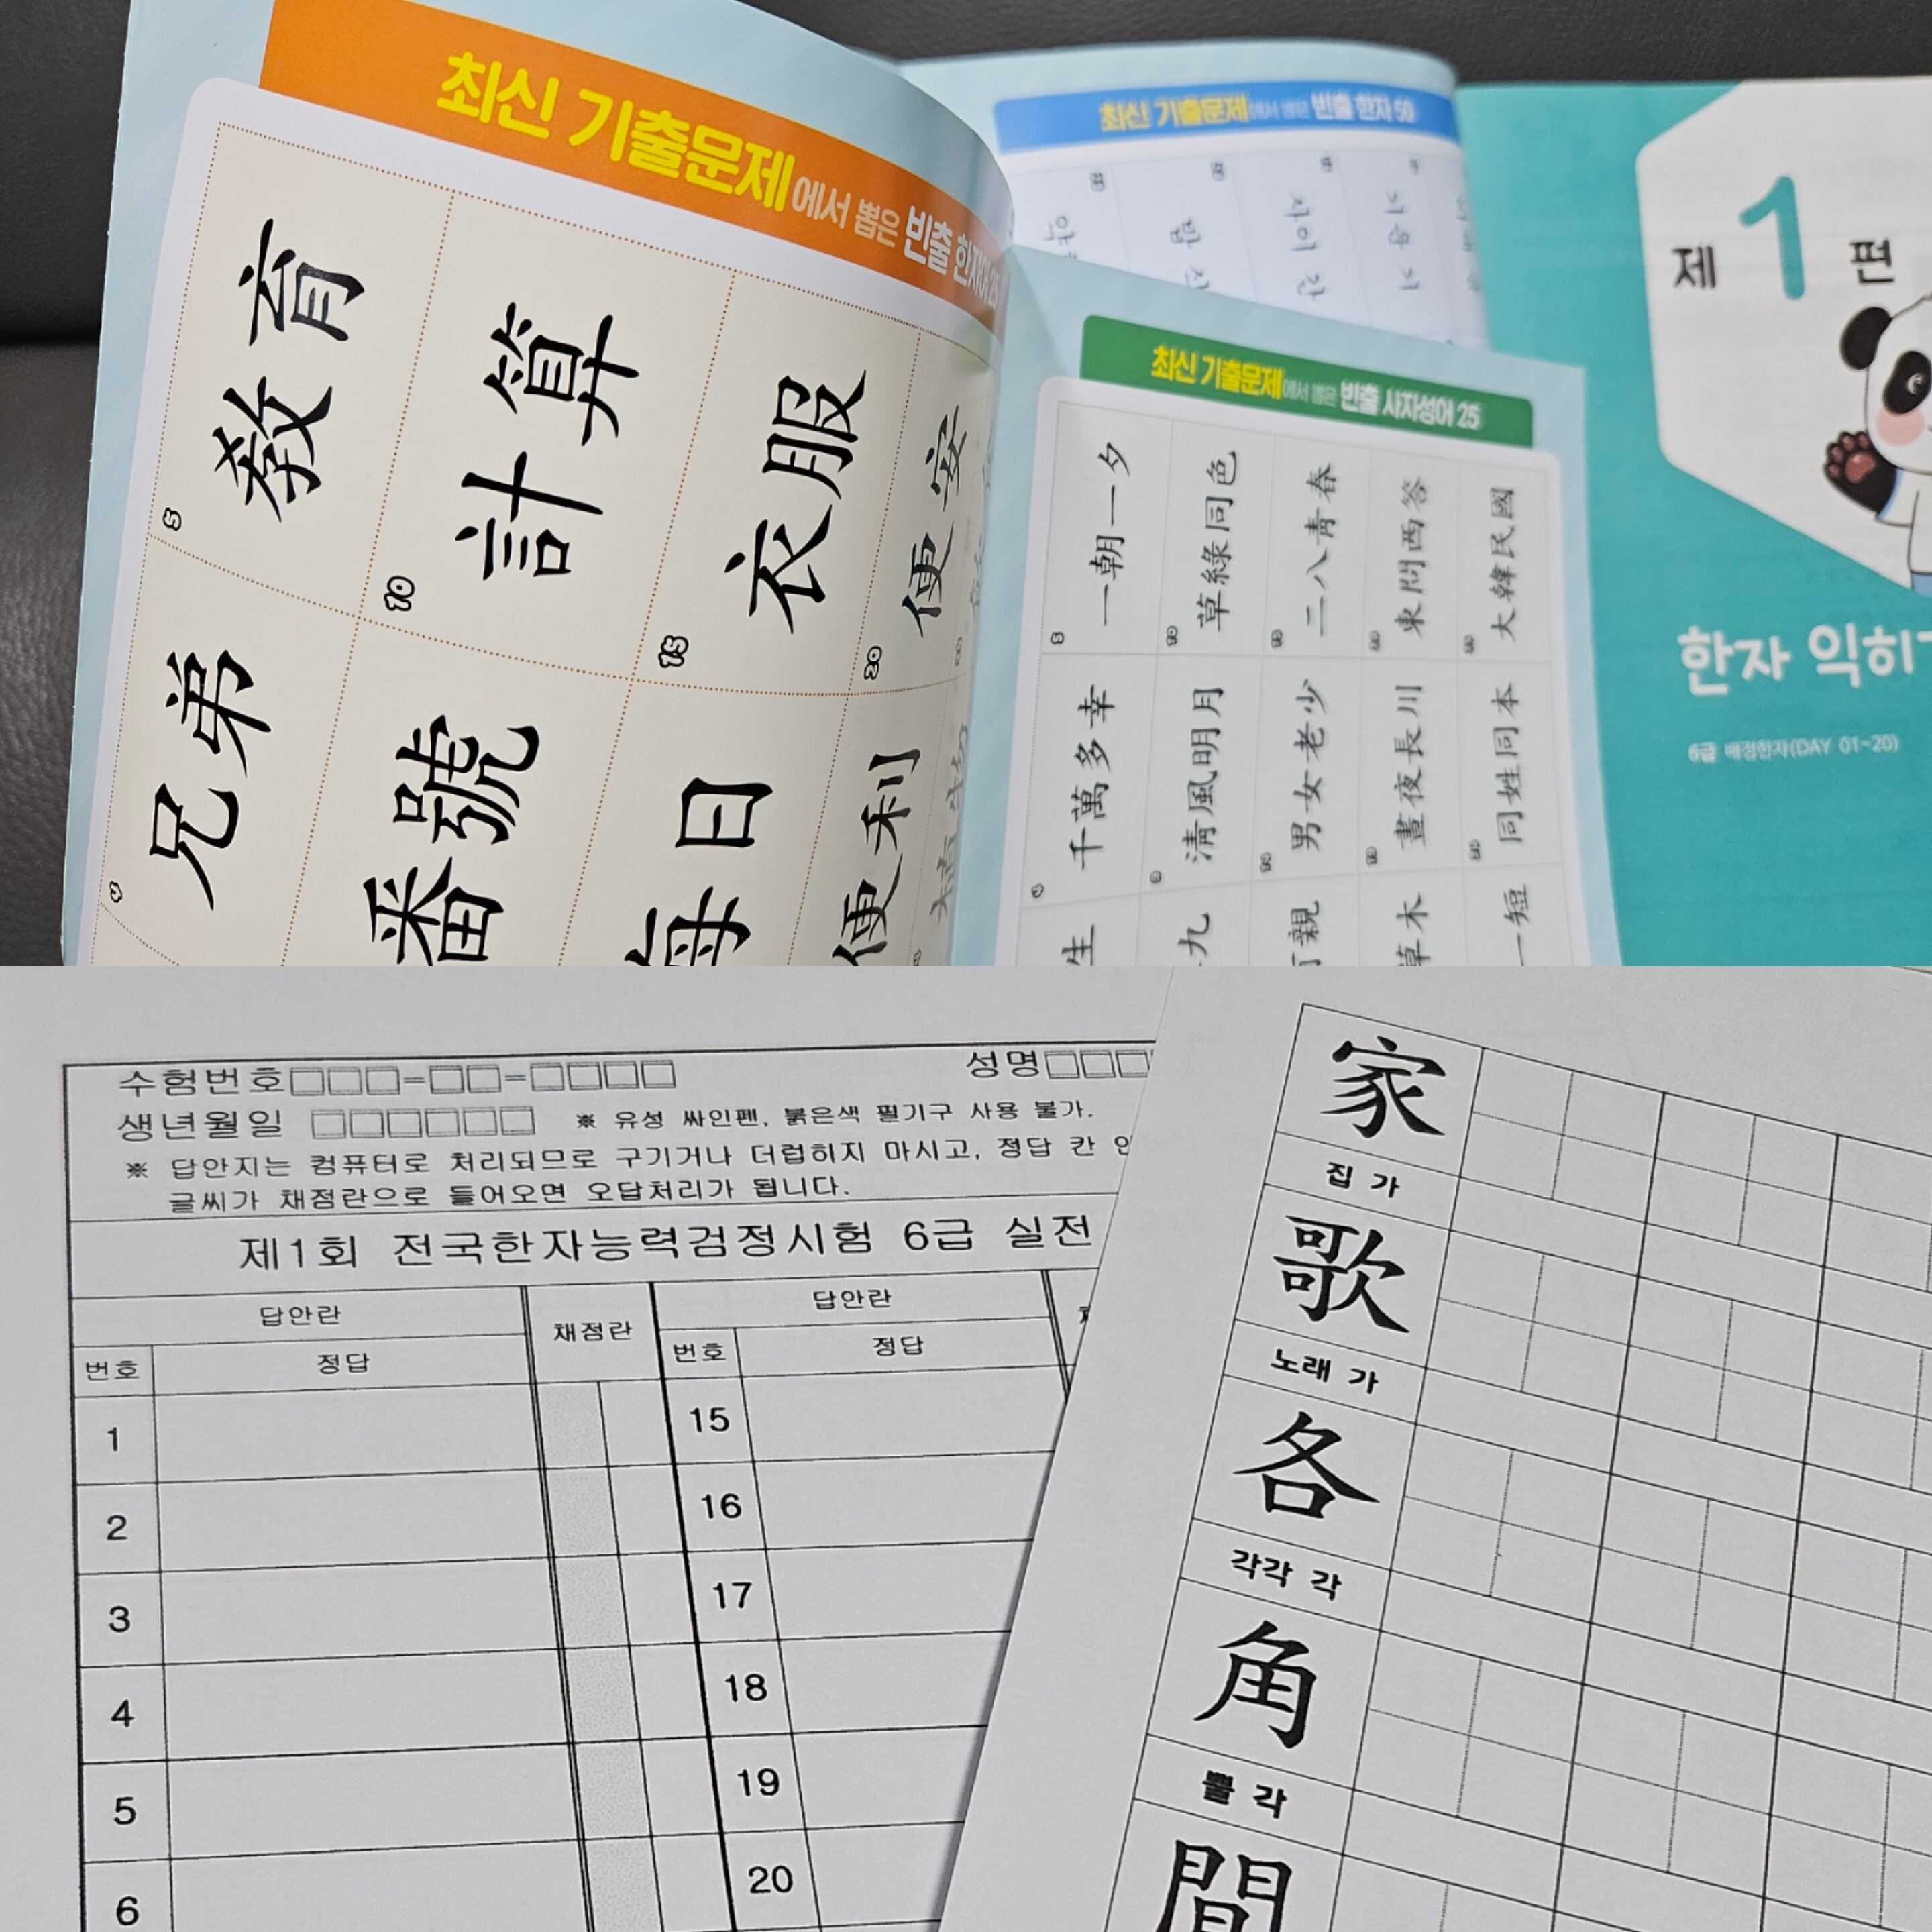 최신 기출문제에서 뽑은 빈출 한자어 25
5 敎育
10 計算
15 衣服
20 便安
4 兄弟
番號
每日
便利
최신 기출문제에서 뽑은 빈출 한자 50
최신 기출문제에서 뽑은 빈출 사자성어 25
5 一朝一夕
10 草綠同色
15 二八靑春
20 東問西答
25 大韓民國
4 千萬多幸
9 淸風明月
男女老少
晝夜長川
同姓同本
生
九
親
草木
一短
제 1 편
한자 익히
6급 배정한자(DAY 01~20)
수험번호□□□-□□-□□□□ 성명□□□
생년월일 □□□□□□ ※ 유성 싸인펜, 붉은색 필기구 사용 불가.
※ 답안지는 컴퓨터로 처리되므로 구기거나 더럽히지 마시고, 정답 칸 안
글씨가 채점란으로 들어오면 오답처리가 됩니다.
제1회 전국한자능력검정시험 6급 실전
답안란 채점란 답안란
번호 정답 번호 정답
1 15
2 16
3 17
4 18
5 19
6 20
家
집 가
歌
노래 가
各
각각 각
角
뿔 각
間